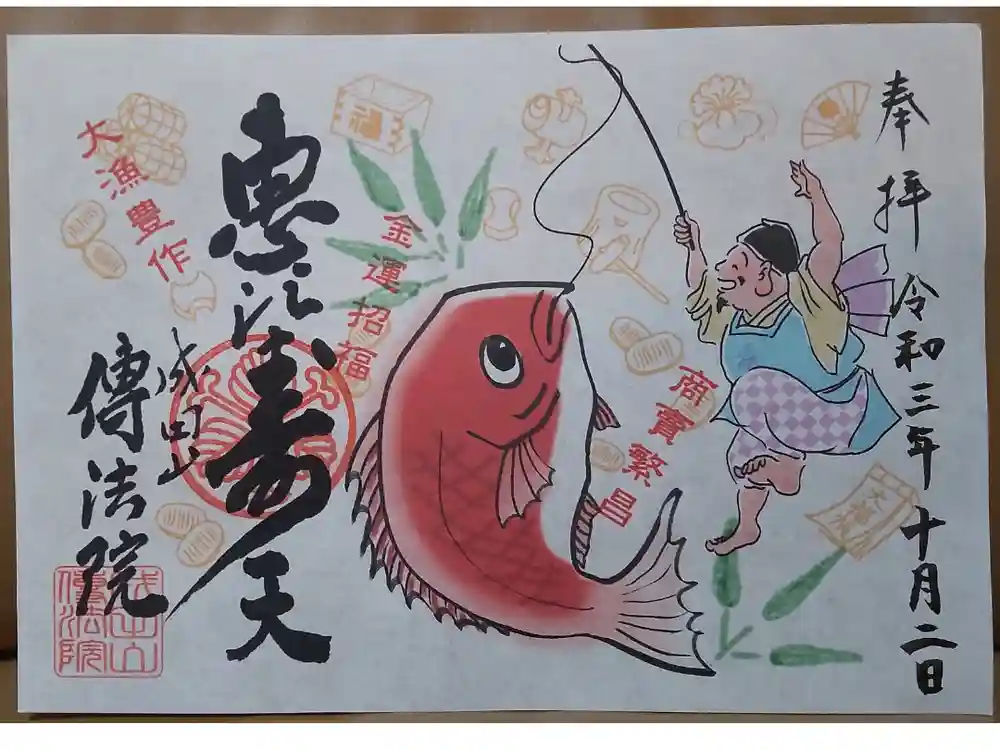 奉拝 令和三年 十月二日
商賣繁昌
金運招福
恵比寿天
大漁豊作
成田山
傳法院
福
大福帳
成田山
傳法院